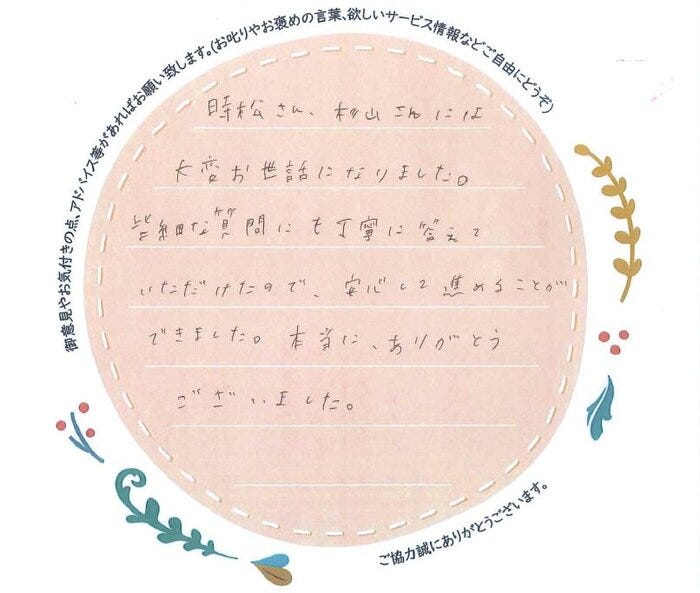 御意見やお気付きの点、アドバイス等があればお願い致します。(お叱りやお褒めの言葉、欲しいサービス情報などご自由にどうぞ)
時松さん、杉山さんには
大変お世話になりました。
些細な質問にも丁寧に答えて
いただけたので、安心して進めることが
できました。本当に、ありがとう
ございました。
ご協力誠にありがとうございます。